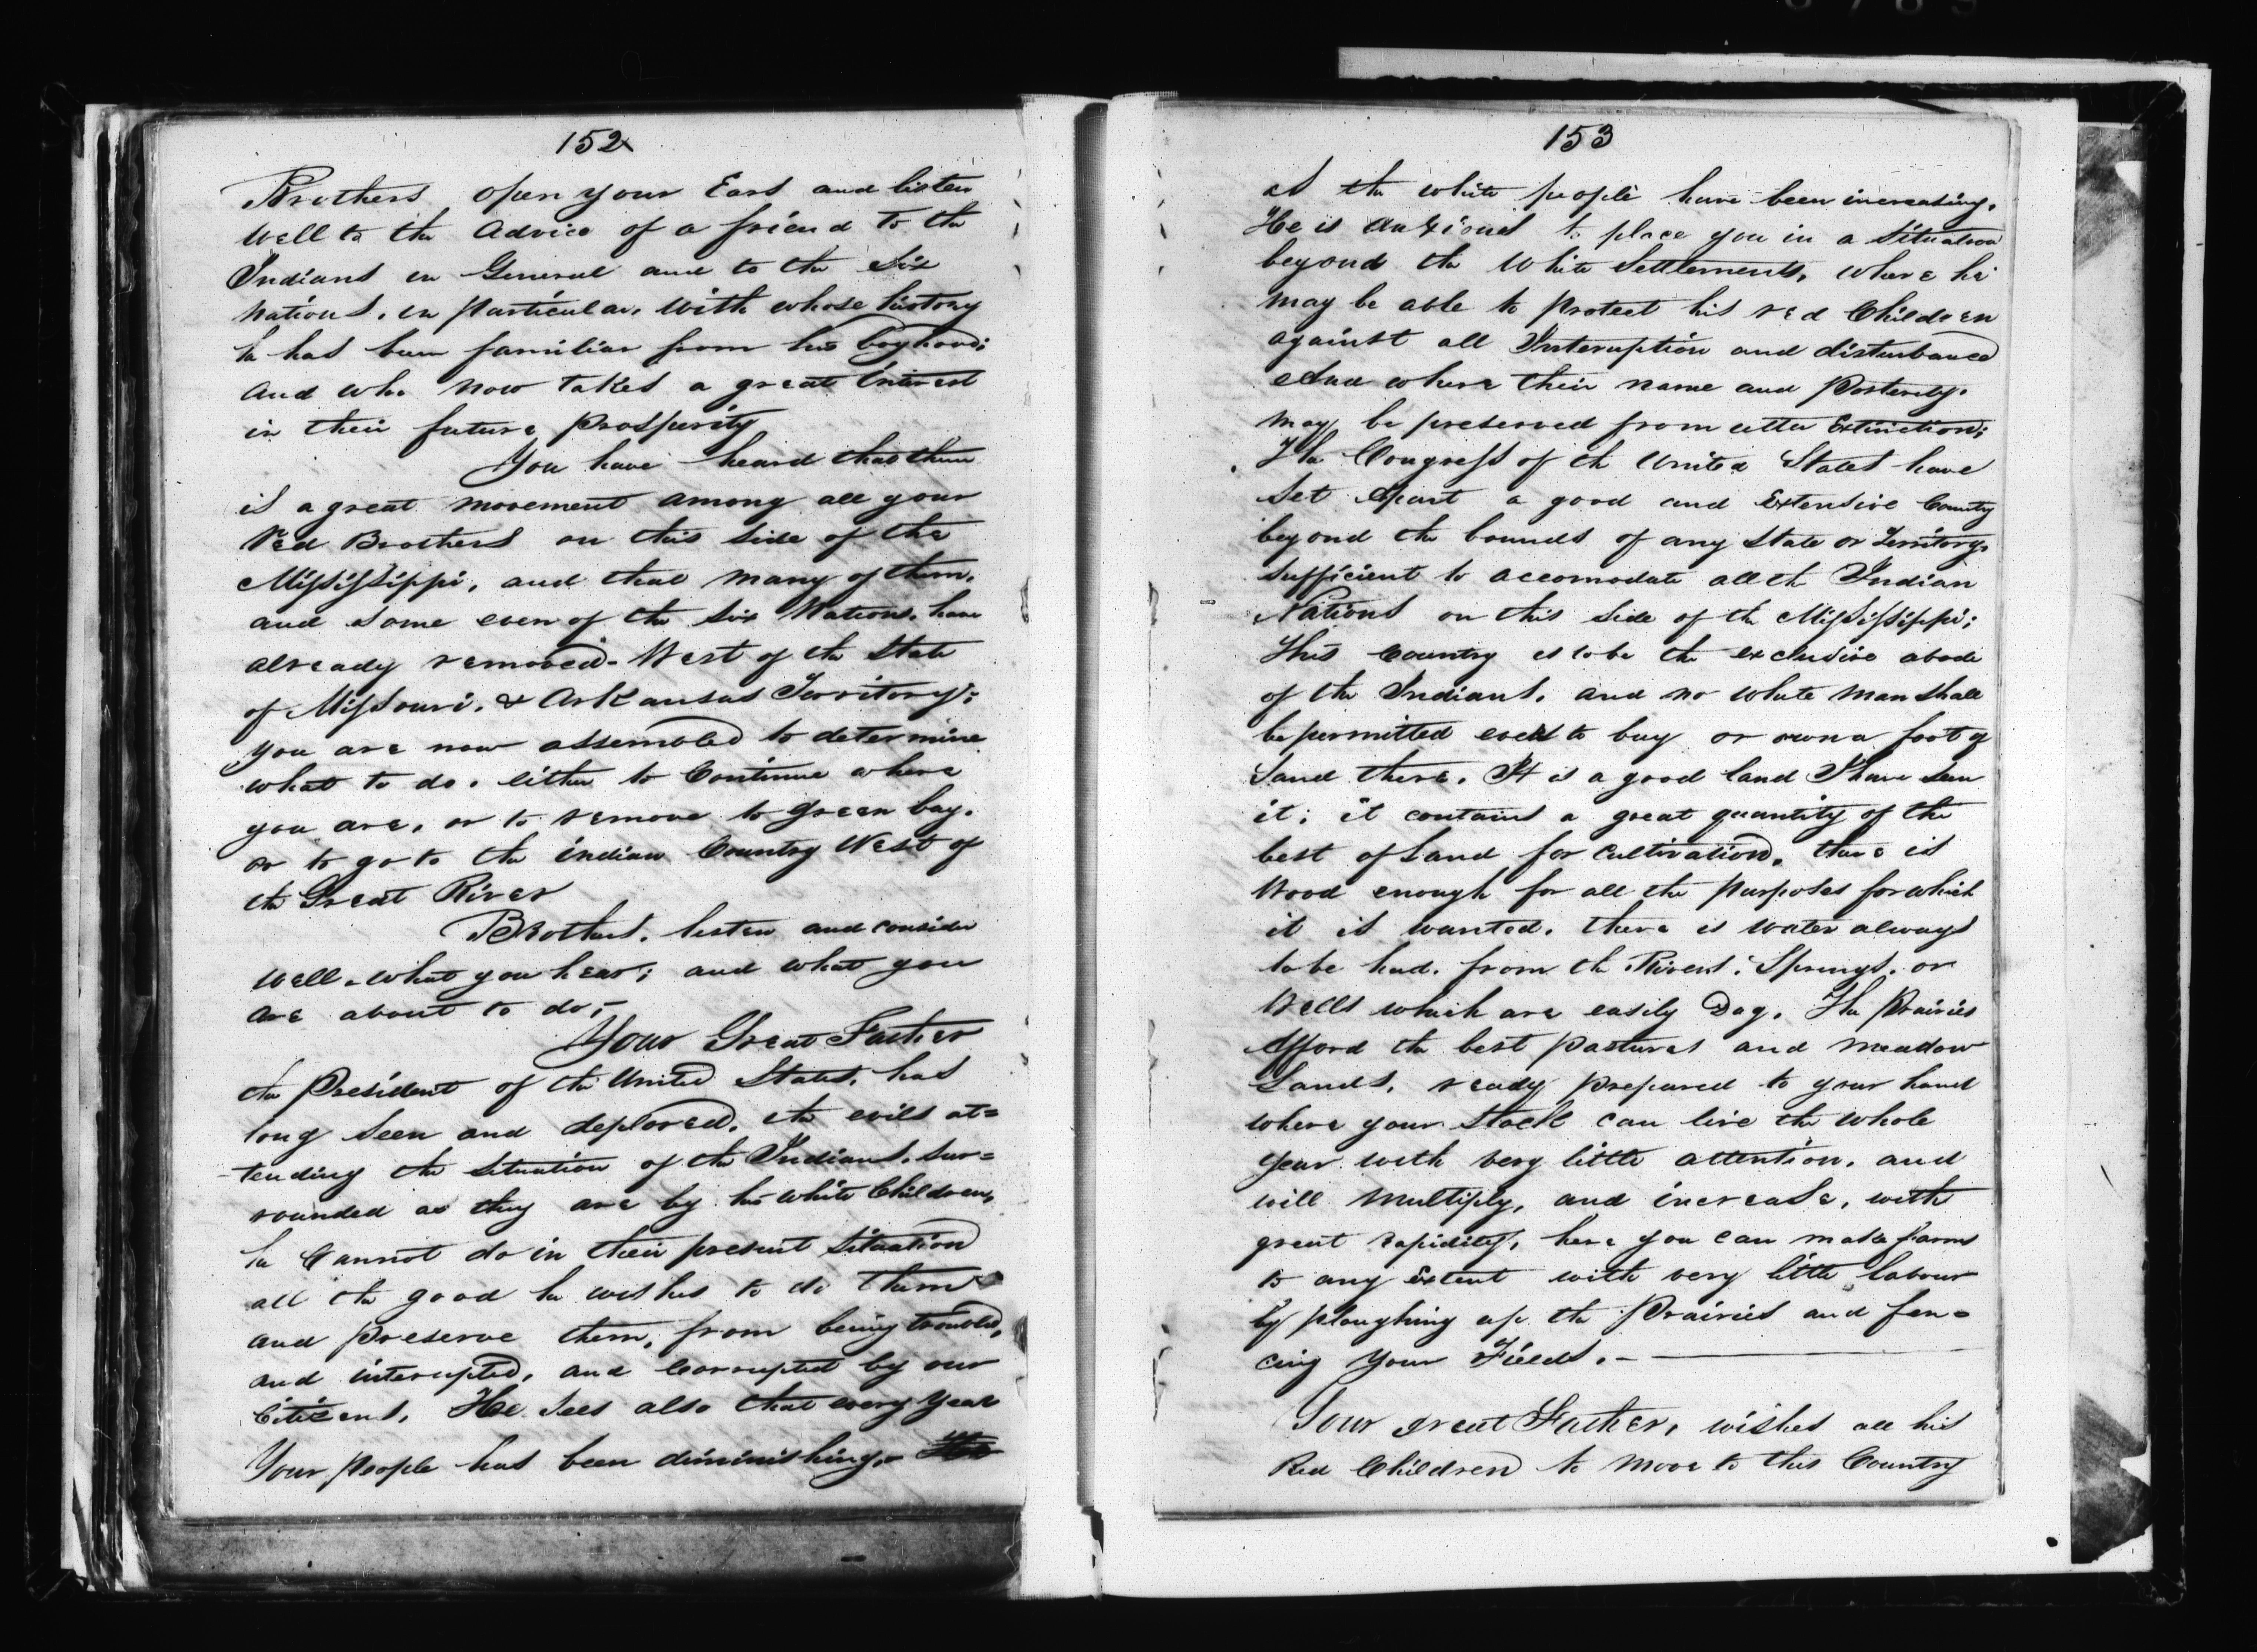 152
Brothers open your Ears and listen
Well to the Advice of a friend to the
Indians in General and to the Six
Nations. in particular. With whose history
he has been familiar from his boyhood;
And who now takes a great interest
in their future prosperity
You have heard that there
is a great movement among all your
Red Brothers on this side of the
Mississippi, and that many of them.
and some even of the six Nations. have
already removed West of the State
of Missouri. & Arkansas Territory;
you are now assembled to determine
what to do. either to Continue where
you are, or to remove to Green bay.
or to go to the indian Country West of
the Great River
Brothers. listen and consider
well what you hear; and what you
are about to do;-
Your Great Father
the President of the United States. has
long seen and deplored. the evils at=
tending the situation of the Indians. sur=
rounded as they are by his white Children,
he Cannot do in their present situation
all the good he wishes to do them
and preserve them, from being troubled,
and interupted, and Corrupted by our
Citizens. He sees also that every year
Your people has been diminishing.
153
as the white people have been increasing.
He is Anxious to place you in a situation
beyond the White Settlements, where he
may be able to protect his red Children
against all Interuption and disturbance
And where their name and Posterity.
may be preserved from utter Extinction;
The Congress of th United States have
Set Apart a good and Extensive County
beyond the bounds of any State or Territory.
sufficient to accomodate all th Indian
Nations on this side of the Mississippi;
This Country is to be the exclusive abode
of the Indians. and no white man shall
be permitted even to buy or own a foot of
Land there. It is a good land I have seen
it; it contains a great quantity of the
best of Land for Cultivation. there is
Wood enough for all the purposes for which
it is wanted. there is water always
to be had. from th Rivers. Springs. or
Wells which are easily Dug. The Prairies
Afford the best pastures and meadow
Lands, ready prepared to your hand
where your Stock can live the whole
Year with very little attention. and
will Multiply, and increase, with
great rapidity, here you can make farms
to any Extent with very little labour
by ploughing up the Prairies and fen=
cing Your Fields. -
Your great Father, wishes all his
Red Children to move to this Country